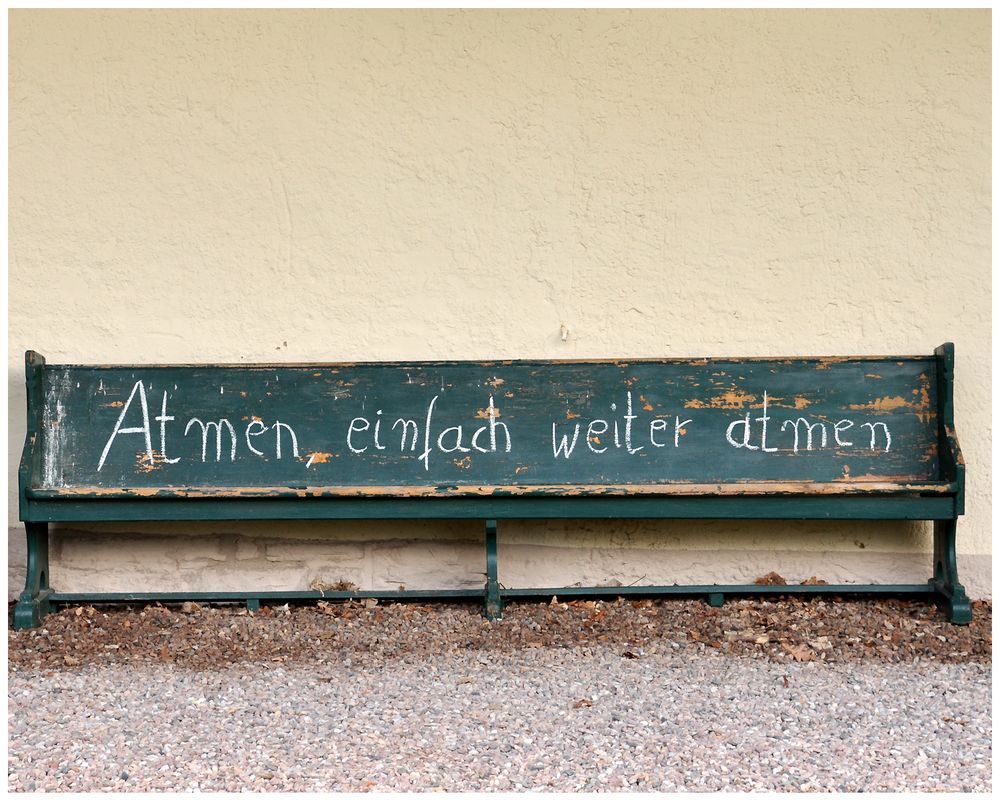 Atmen, einfach weiter atmen